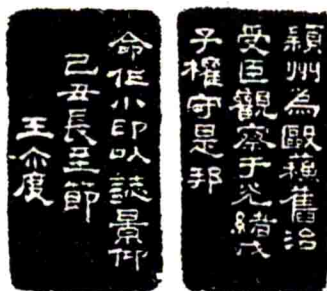 潁州為歐蘇舊治
受臣觀察于光緒戊
子權守是邦
命作小印以誌景仰
己丑長至節
王尒度